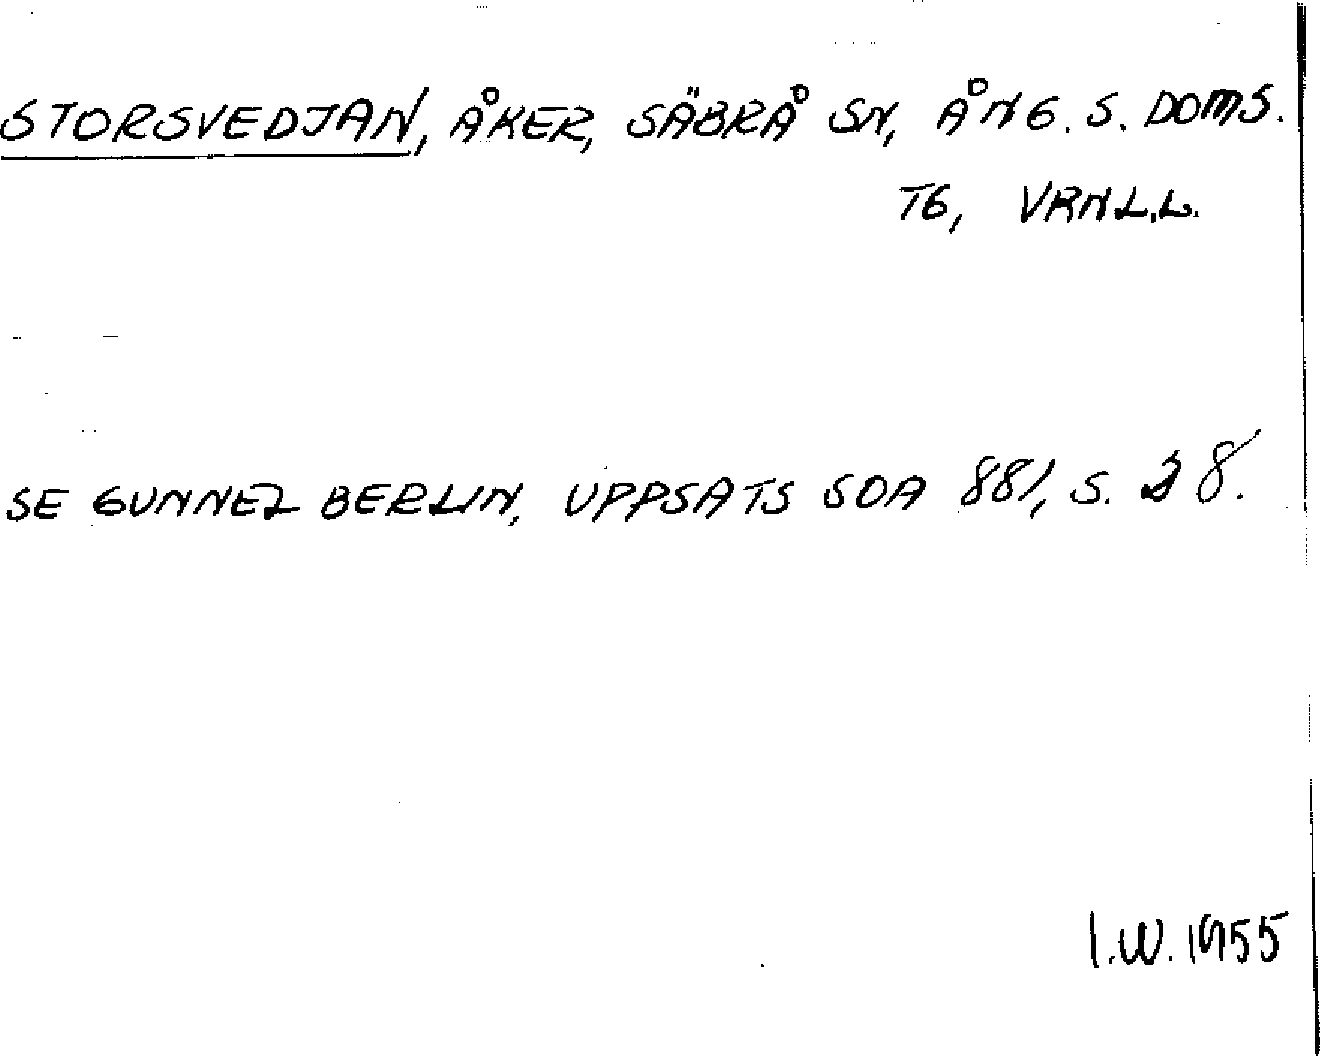 STORSVEDJAN, ÅKER, SÄBRÅ SN, ÅNG. S. DOMS.
TG, VRNL.L.
SE GUNNEL BERLIN, UPPSATS SOA 881, S. 38.
I.W. 1955